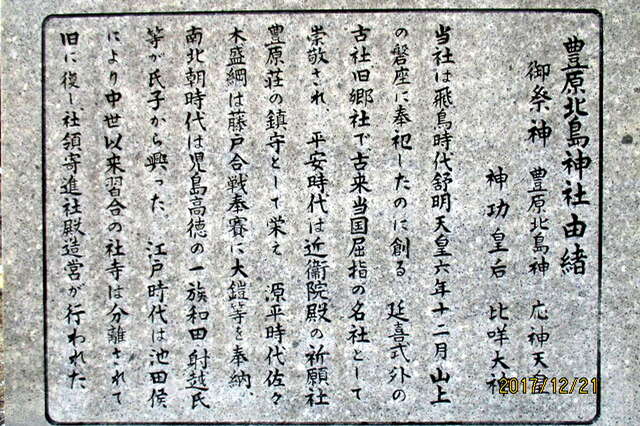 豊原北島神社由緒
御祭神 豊原北島神 応神天皇
神功皇后 比咩大神
当社は飛鳥時代舒明天皇六年十二月山上
の磐座に奉祀したのに創る 延喜式外の
古社旧郷社で、古来当国屈指の名社として
崇敬され、平安時代は近衛院殿の祈願社
豊原荘の鎮守として栄え 源平時代佐々
木盛綱は藤戸合戦奉賽に大鎧等を奉納
南北朝時代は児島高徳の一族和田射越氏
等が氏子から興った 江戸時代は池田侯
により中世以来習合の社寺は分離されて
旧に復し、社領寄進社殿造営が行われた
2017/12/21